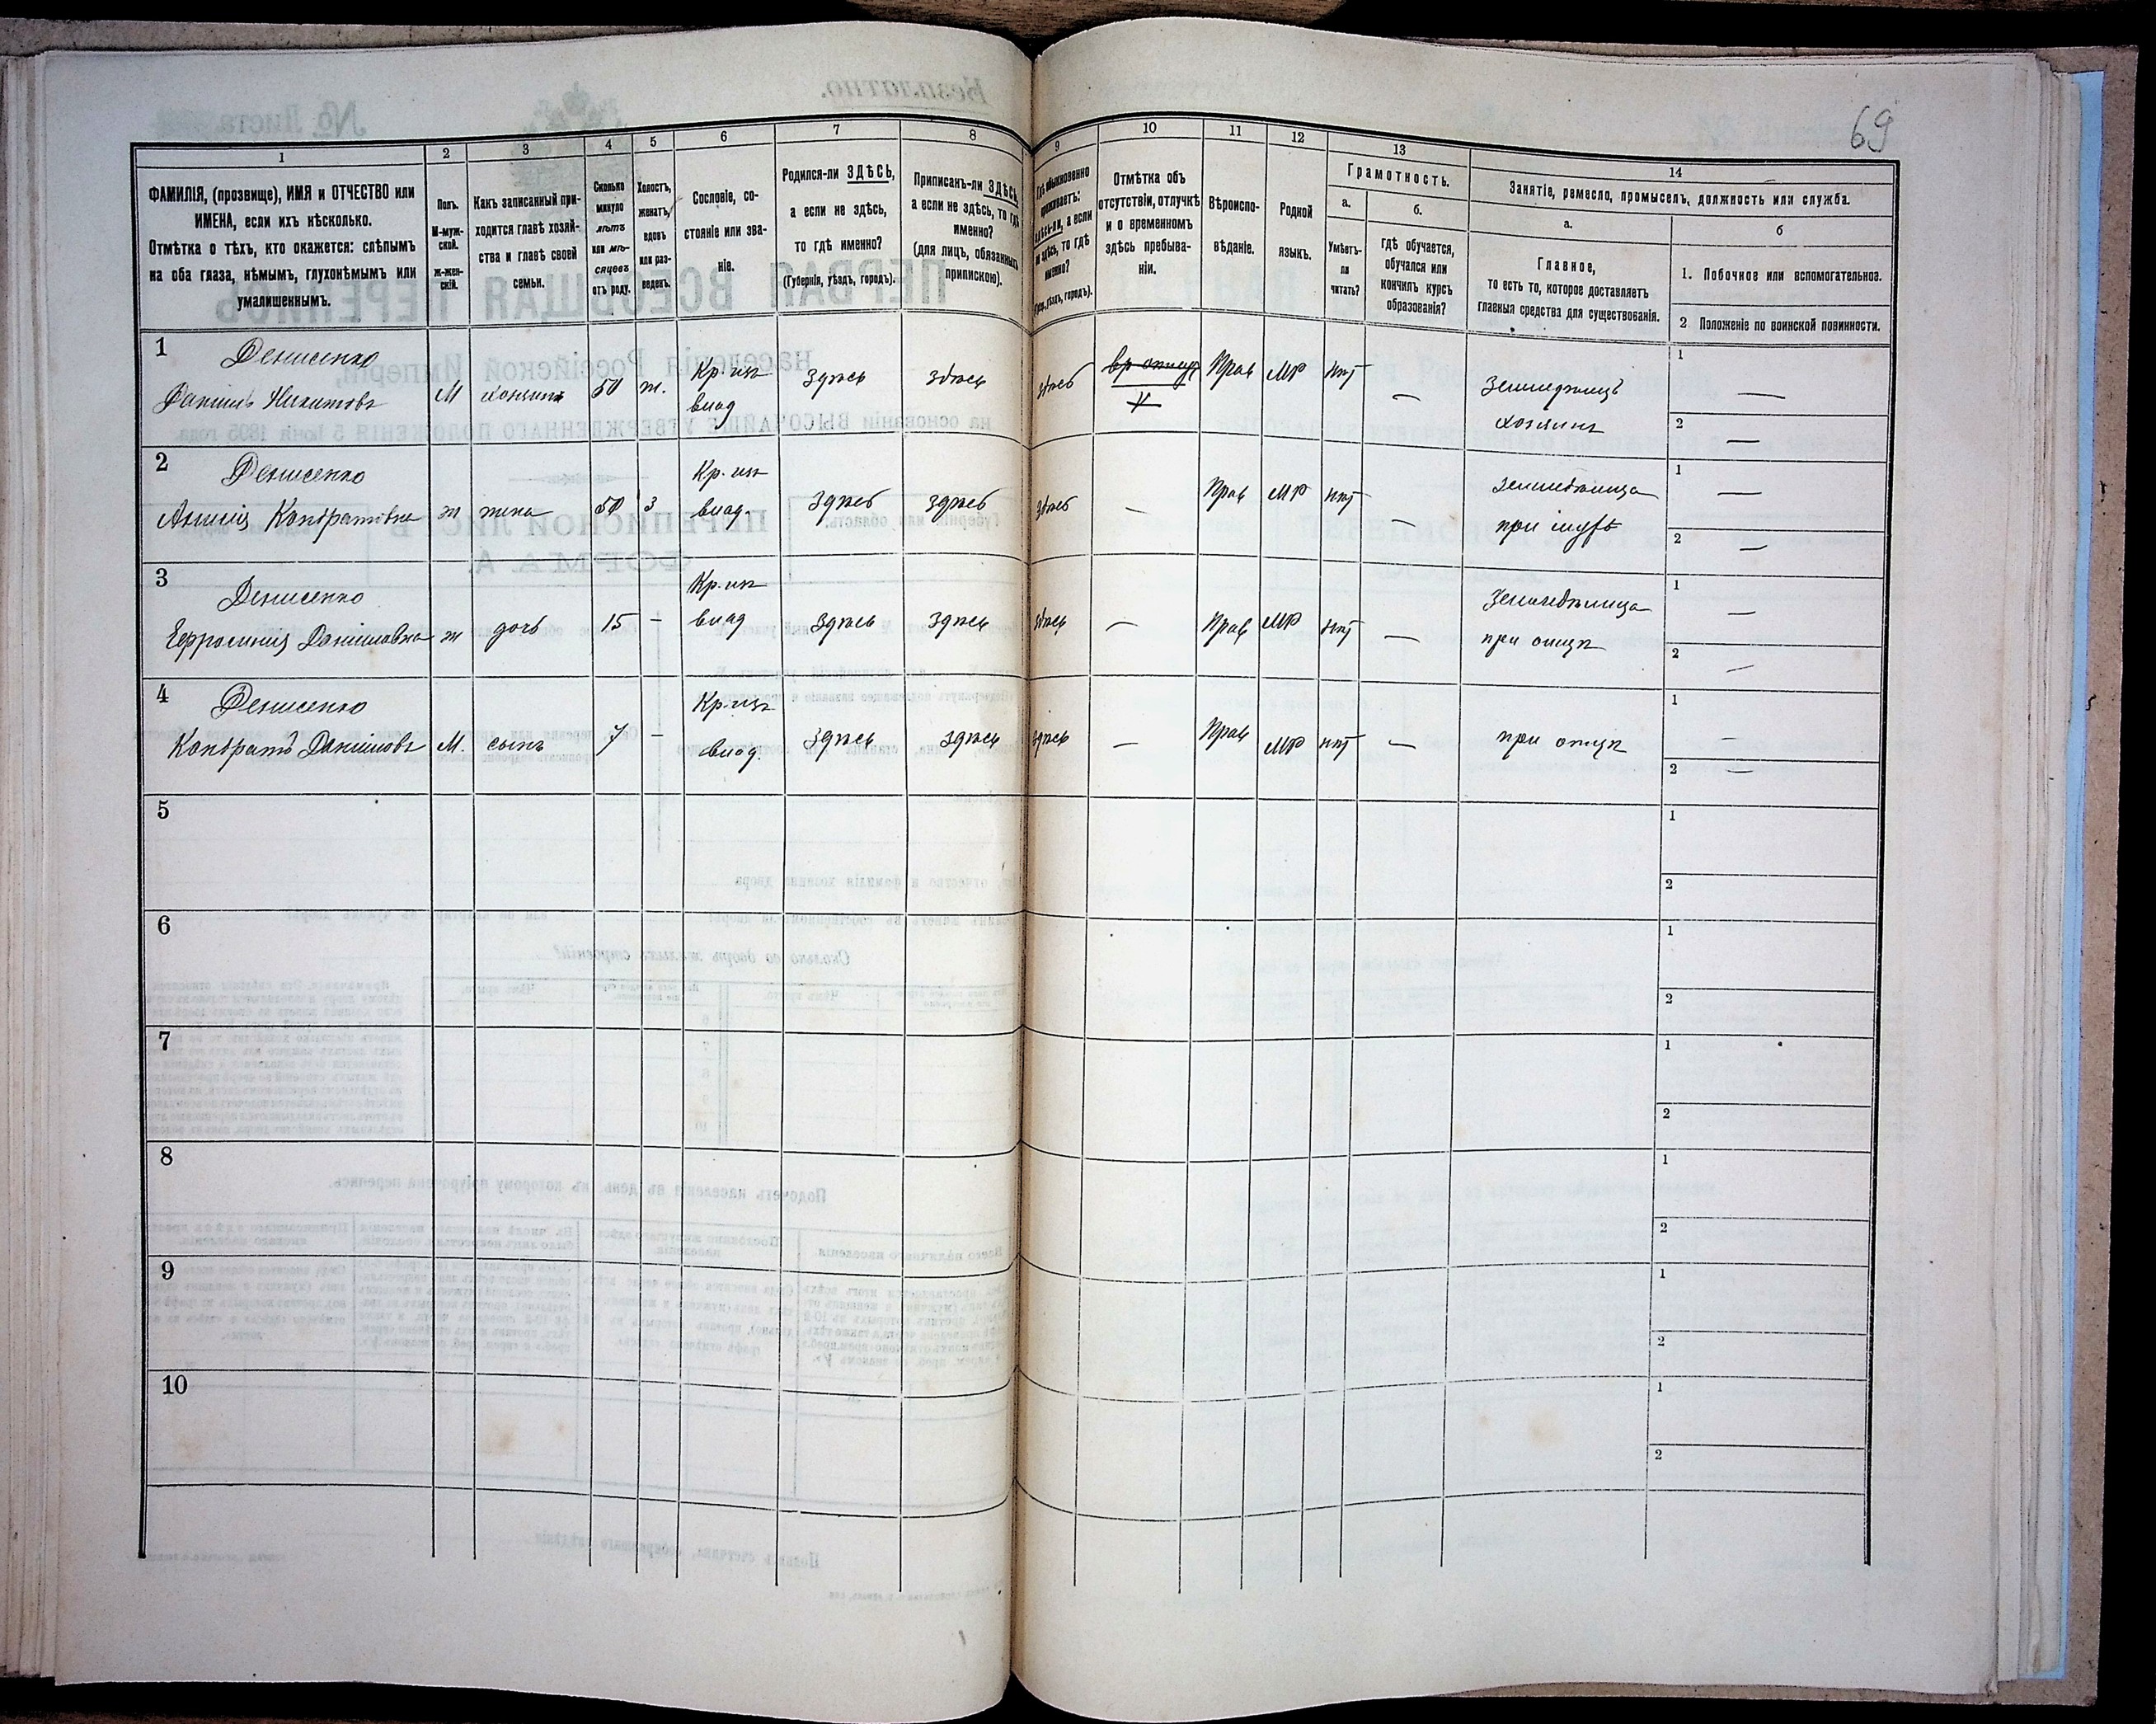 69
1
2
3
4
5
6
7
8
9
10
11
12
13
14
ФАМИЛІЯ, (прозвище), ИМЯ и ОТЧЕСТВО или
ИМЕНА, если ихъ нѣсколько.
Отмѣтка о тѣхъ, кто окажется: слѣпымъ
на оба глаза, нѣмымъ, глухонѣмымъ или
умалишеннымъ.
Полъ.
М-муж-
ской.
Ж-жен-
скій.
Какъ записанный при-
ходится главѣ хозяй-
ства и главѣ своей
семьи.
Сколько
минуло
лѣтъ
или мѣ-
сяцевъ
отъ роду.
Холостъ,
женатъ,
вдовъ
или раз-
веденъ.
Сословіе, со-
стояніе или зва-
ніе.
Родился-ли ЗДѢСЬ,
а если не здѣсь,
то гдѣ именно?
(Губернія, уѣздъ, городъ).
Приписанъ-ли ЗДѢСЬ,
а если не здѣсь, то гдѣ
именно?
(для лицъ, обязанныхъ
припискою).
Гдѣ обыкновенно
проживаетъ:
здѣсь-ли, а если
не здѣсь, то гдѣ
именно?
(Губ., уѣздъ, городъ).
Отмѣтка объ
отсутствіи, отлучкѣ
и о временномъ
здѣсь пребыва-
ніи.
Вѣроиспо-
вѣданіе.
Родной
языкъ.
Грамотность.
а.
Умѣетъ-
ли
читать?
б.
Гдѣ обучается,
обучался или
кончилъ курсъ
образованія?
Занятіе, ремесло, промыселъ, должность или служба.
а.
Главное,
то есть то, которое доставляетъ
главныя средства для существованія.
б
1. Побочное или вспомогательное.
2. Положеніе по воинской повинности.
1
Денисенко
Даніилъ Никитовъ
М
хозяинъ
50
ж.
Кр. изъ
влад
здѣсь
здѣсь
здѣсь
Прав
МР
нѣт
—
Земледѣлецъ
хозяинъ
1 —
2 —
2
Денисенко
Кондратовна
ж
жена
50
З
Кр. изъ
влад.
здѣсь
здѣсь
здѣсь
—
Прав
МР
нѣт
—
земледѣлица
при мужѣ
1 —
2 —
3
Денисенко
Ефросинія Даніиловна
ж
дочь
15
-
Кр. изъ
влад
здѣсь
здѣсь
здѣсь
—
Прав
МР
нѣт
—
Земледѣлица
при отцѣ
1 —
2 —
4
Денисенко
Кондратъ Даніиловъ
М.
сынъ
7
-
Кр. изъ
влад.
здѣсь
здѣсь
здѣсь
—
Прав
МР
нѣт
—
при отцѣ
1 —
2 —
5
1
2
6
1
2
7
1
2
8
1
2
9
1
2
10
1
2